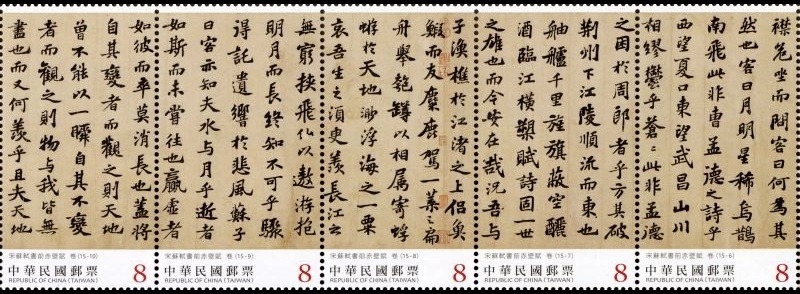 襟危坐而問客曰何為其
然也客曰月明星稀烏鵲
南飛此非曹孟德之詩乎
西望夏口東望武昌山川
相繆鬱乎蒼〻此非孟德
之困於周郎者乎方其破
荊州下江陵順流而東也
舳艫千里旌旗蔽空釃
酒臨江橫槊賦詩固一世
之雄也而今安在哉況吾與
子漁樵於江渚之上侶魚
鰕而友麋鹿駕一葉之扁
舟舉匏罇以相屬寄蜉
蝣於天地渺浮海之一粟
哀吾生之須臾羨長江之
無窮挾飛仙以遨游抱
明月而長終知不可乎驟
得託遺響於悲風蘇子
曰客亦知夫水與月乎逝者
如斯而未嘗往也贏虛者
如彼而卒莫消長也蓋將
自其變者而觀之則天地
曾不能以一瞬自其不變
者而觀之則物與我皆無
盡也而又何羨乎且夫天地
宋蘇軾書前赤壁賦 卷 (15-10)
中華民國郵票 8
REPUBLIC OF CHINA (TAIWAN)
宋蘇軾書前赤壁賦 卷 (15-9)
中華民國郵票 8
REPUBLIC OF CHINA (TAIWAN)
宋蘇軾書前赤壁賦 卷 (15-8)
中華民國郵票 8
REPUBLIC OF CHINA (TAIWAN)
宋蘇軾書前赤壁賦 卷 (15-7)
中華民國郵票 8
REPUBLIC OF CHINA (TAIWAN)
宋蘇軾書前赤壁賦 卷 (15-6)
中華民國郵票 8
REPUBLIC OF CHINA (TAIWAN)